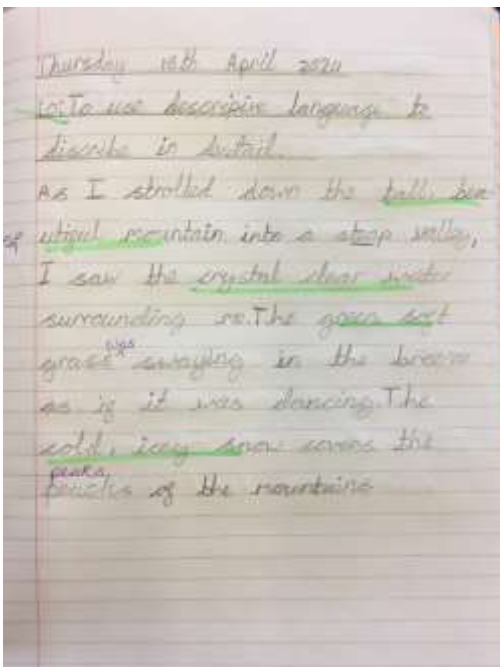 Thursday 18th April 2024
LO: To use descripive language to
discribe in detail.
As I strolled down the tall, bea
utiful mountain into a steep valley,
I saw the crystal clear water
surrounding me. The green soft
grass was swaying in the breeze
as if it was dancing. The
cold, icey snow covers the
peaks
of the mountains